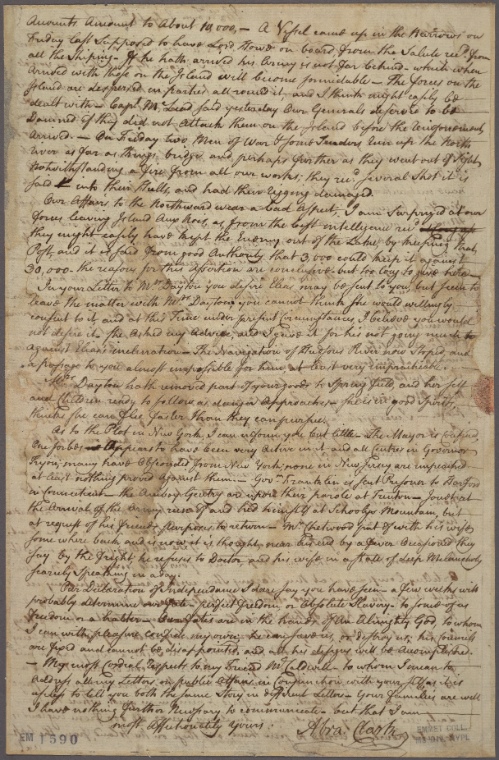 Accounts Amount to About 10,000, – A Vessel came up in the Narrows on
Friday last Supposed to have Lord Howe on board from the Salute rec'd from
all the Shiping. If he hath arrived his Army is not far behind – which when
arrived with those on the Island will become formidable – The forces on the
Island are despersed in parties all round it, and I think might easily be
dealt with – Capt. Mc Leod said yesterday Our Generals deserve to be
Damned if they did not Attack them on the Island before the Reinforcements
Arrived – On Friday two Men of War & some Tenders run up the North
River as far as Kings bridge and perhaps further as they went out of sight,
Notwithstanding a fire from all our works, they rec'd several Shot it is
said into their Hulls, and had their rigging damaged
Our Affairs to the Northward wear a bad aspect, I am Surprized at our
forces leaving Island Aux Noix, as from the best intelligence rec'd
they might easily have kept the Enemy out of the Lake, by keeping that
Post, and it is said from good Authority that 3,000 could keep it against
30,000 – the reasons for this assertion are conclusive but too long to give here
In your Letter to Mrs. Dayton you desire Elias may be sent to you, but seem to
leave the matter with Mrs. Dayton you cannot think she would willingly
consent to it, and at this Time under present Circumstances I believe you would
not desire it, She Asked my Advice, and I gave it for his not going much
against Elias's inclination – The Navigation of Hudsons River now Stoped, and
a passage to you almost impossible for him, at least very imprudent.
Mrs. Dayton hath removed part of your goods to Spring field, and her self
and Children ready to follow as danger Approaches – She is in good Spirits
thinks she can flee faster than they can pursue.
As to the Plot in New York I can inform you but little – The Mayor is Confined,
One forbes Appears to have been very Active in it and all Centres in Governor
Tryon; many have Absconded from New York; none in New Jersey are impeached
at least nothing proved against them. – Govr. Franklin is sent Prisoner to Hartford
in Connecticut – the Amboy Gentry are upon their parole at Trenton –
the Arrival of the Army ran off and hid himself at Schooleys Mountain, but
at request of his friends purposes to return – Mr. Chetwood went off with his wife
some where back and is now it is thought near
by a fever Occasioned they
say by the fright he refuses to Doctor and his wife in a State of deep Melancholy
scarcely Speaking in a day.
Our Declaration of Independance I dare say you have seen – a few weeks will
probably determine our fate – perfect freedom, or Absolute Slavery – to some of us
freedom or a halter – Our fates are in the hands of An Almighty God, to whom
I can with pleasure confide my own; he can save us, or destroy us; his Councils
are fixed and cannot be disappointed, and all his designs will be Accomplished.
– My most Cordial respects to my Friend Mr. Caldwell – to whom I mean to
address all my Letters on public Affairs in Conjunction with your self, as it is
useless to tell you both the same Story in different Letters – Your Families are well
I have nothing further Necessary to communicate – but that I am
most Affectionately Yours Abra. Clark
EM 1590
EMMET COLL.